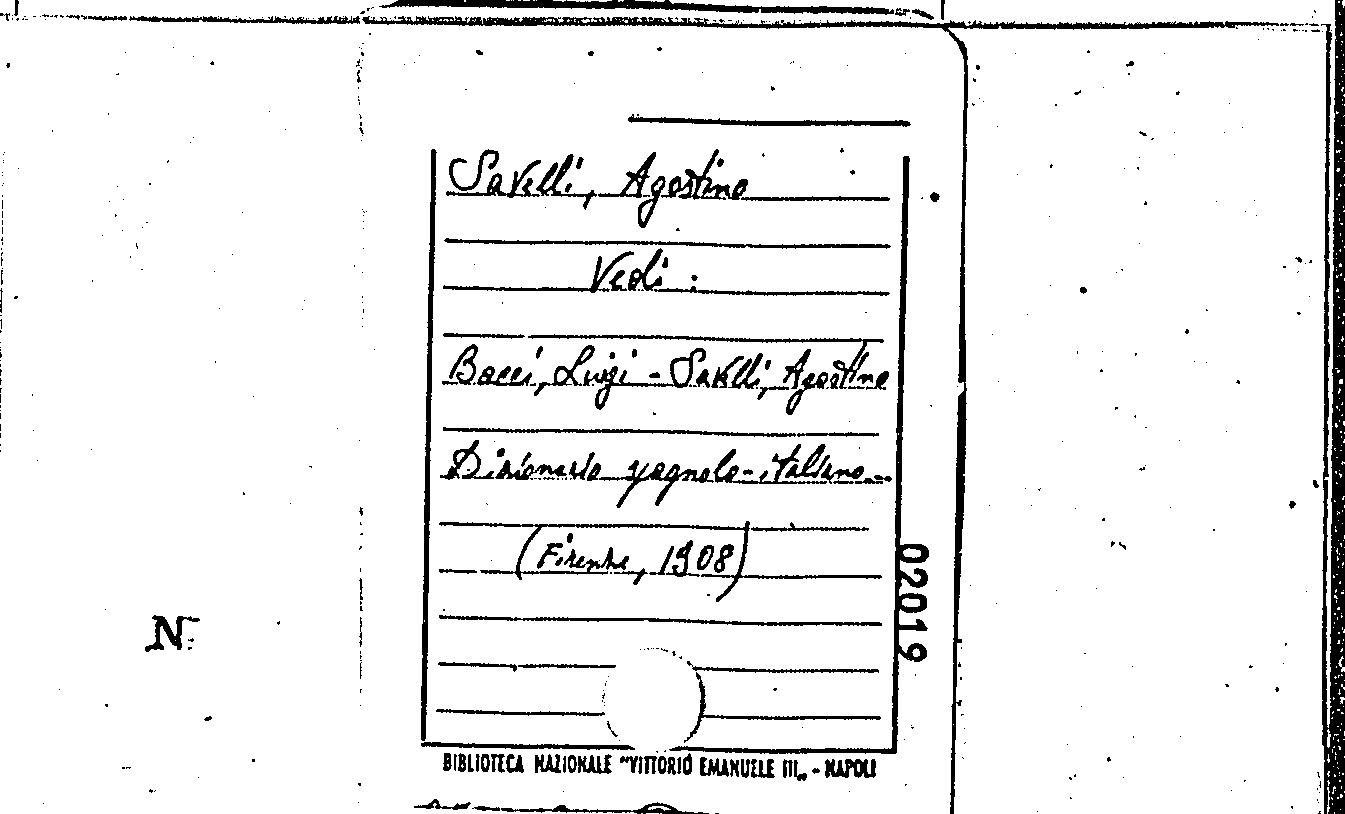 Savelli, Agostino
Vedi :
Bacci, Luigi - Savelli, Agostino
Dizionario spagnolo-italiano...
(Firenze, 1908)
02019
N.
BIBLIOTECA NAZIONALE "VITTORIO EMANUELE III„ - NAPOLI